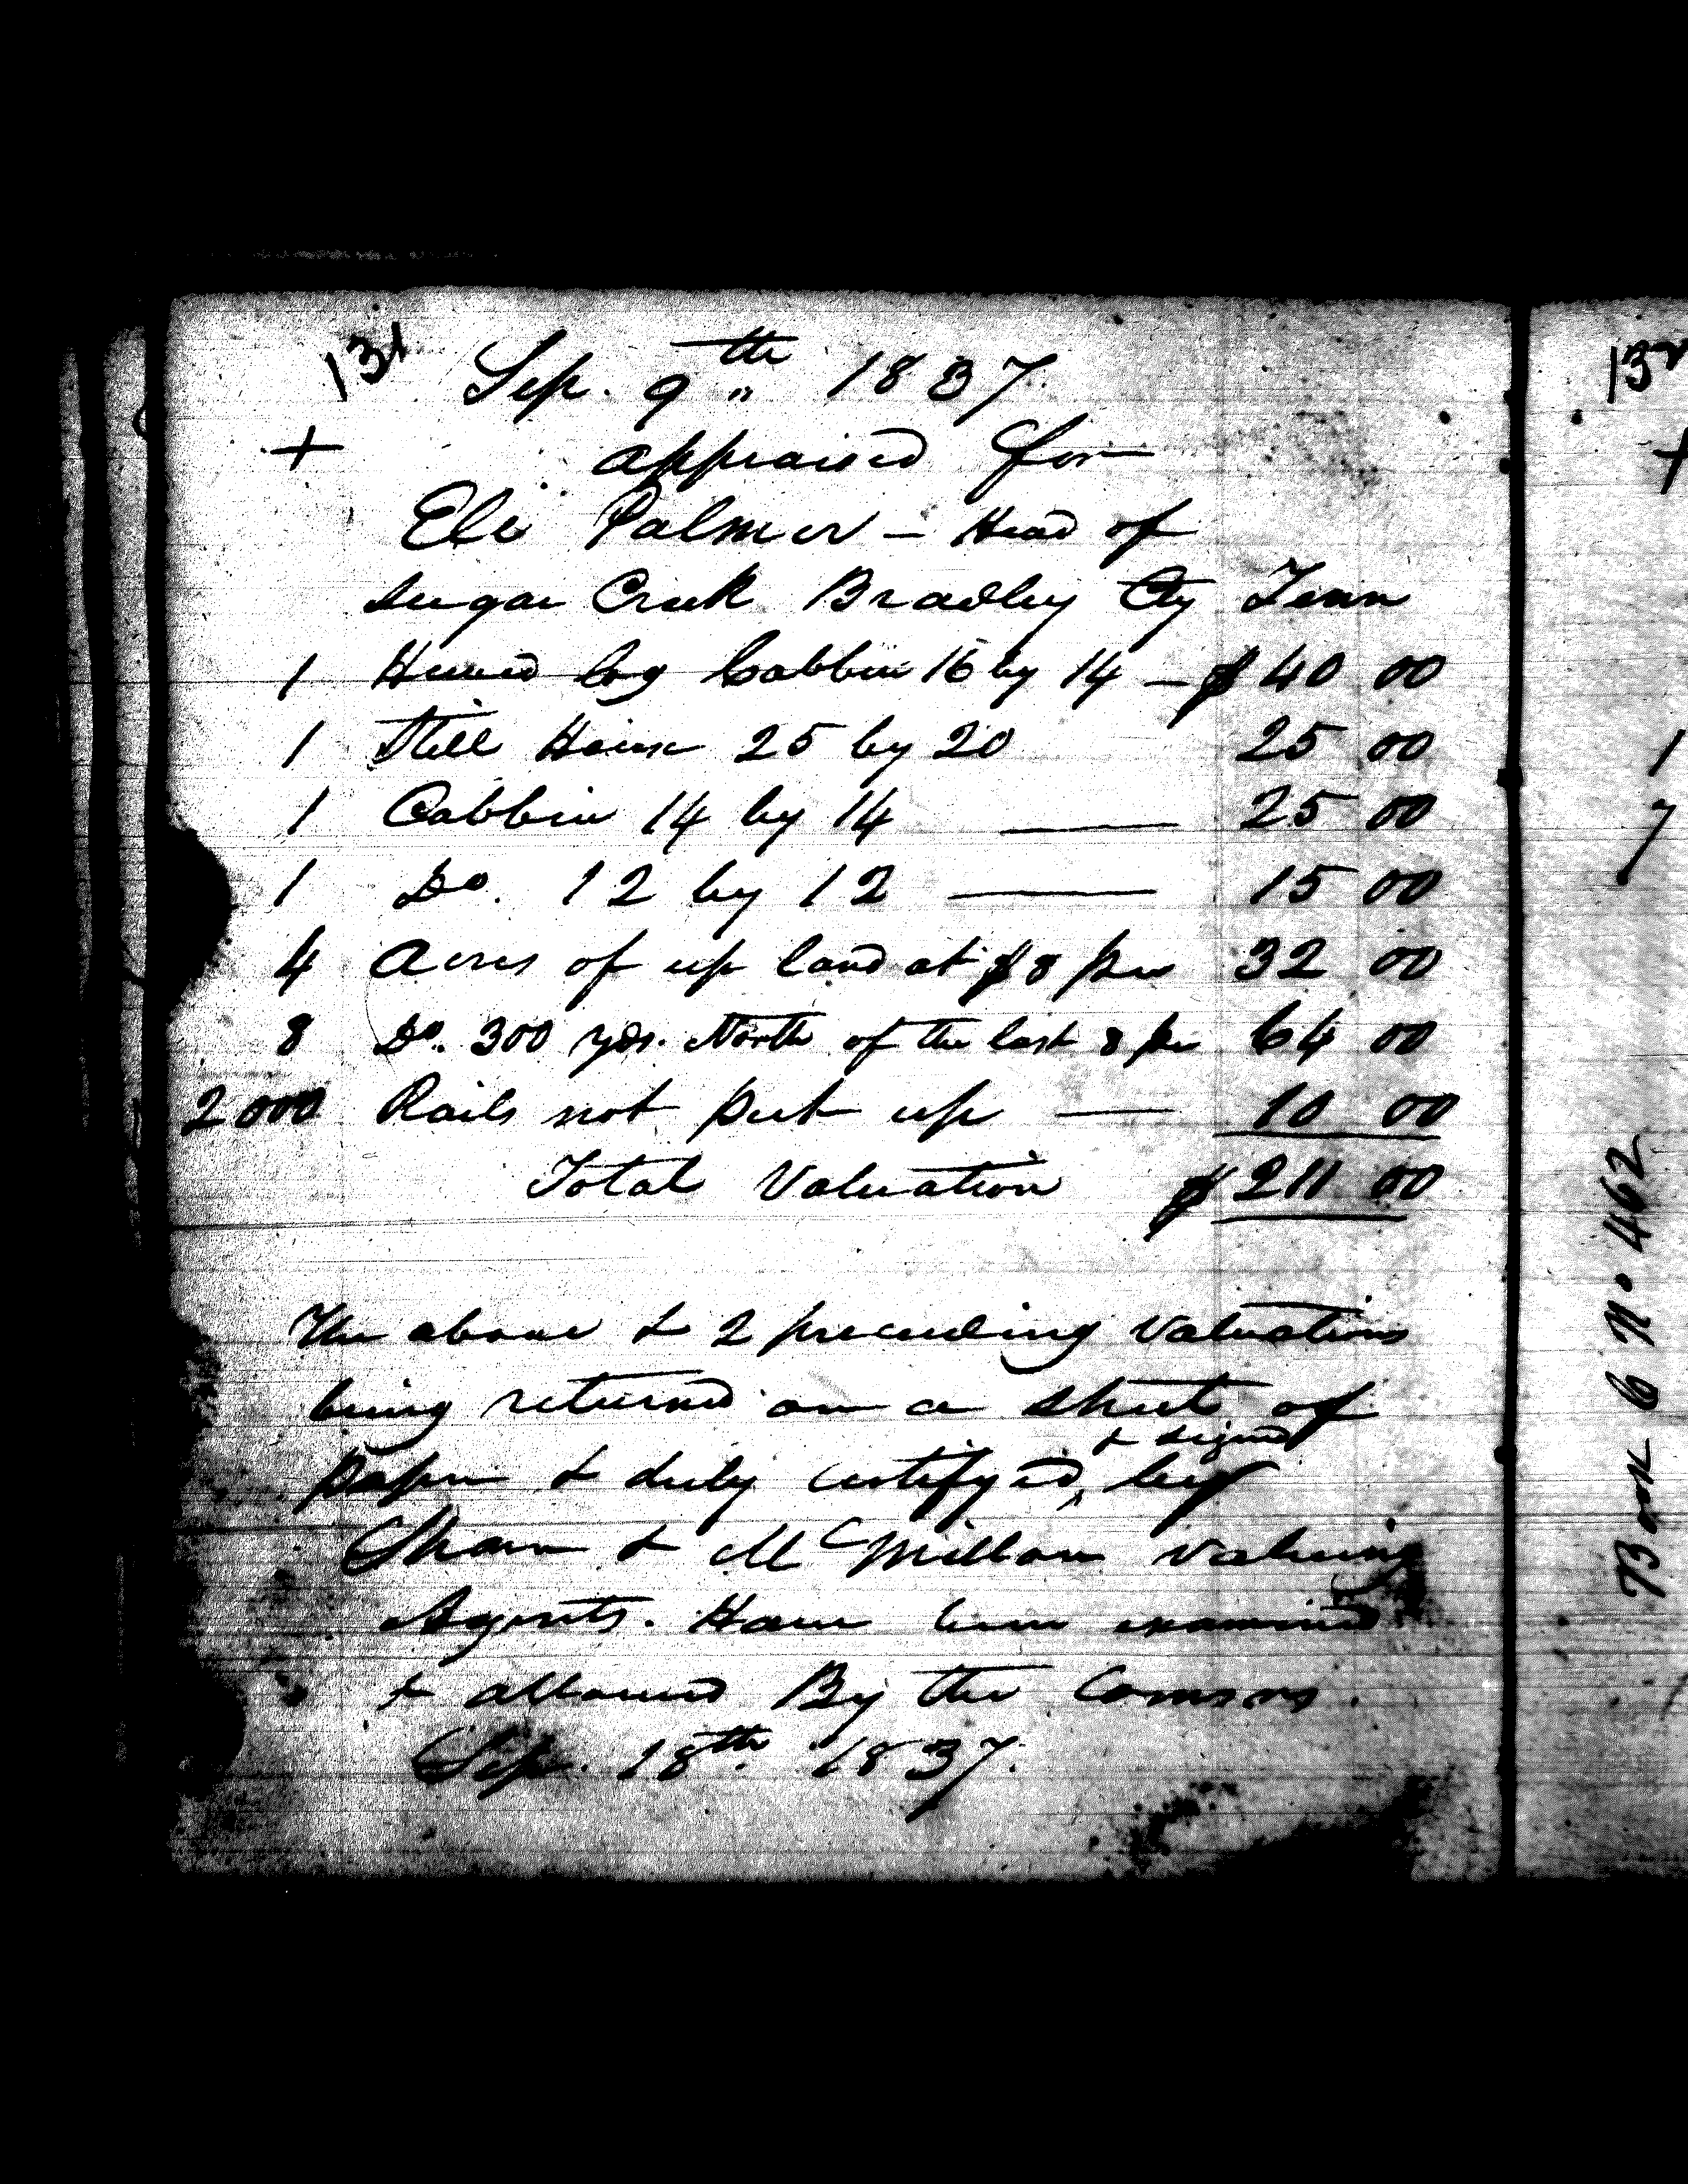 131
Sep. 9th 1837.
+ appraised for
Eli Palmer - Head of
Sugar Creek Bradley Cty Tenn
1 Hewed log Cabbin 16 by 14 - $ 40 00
1 Still House 25 by 20 25 00
1 Cabbin 14 by 14 — 25 00
1 Do. 12 by 12 — 15 00
4 Acres of up land at $8 per 32 00
8 Do. 300 yds. North of the last 8 per 64 00
2000 Rails not put up — 10 00
Total Valuation $ 211 00
The above & 2 preceeding valuations
being returned on a sheet of
paper & duly certifyed, & signed by
Shaw & McMillan valuing
Agents. Have been examined
& allowed By the Comsrs.
Sep. 18th. 1837.
132
+
1
7
Book C No 462